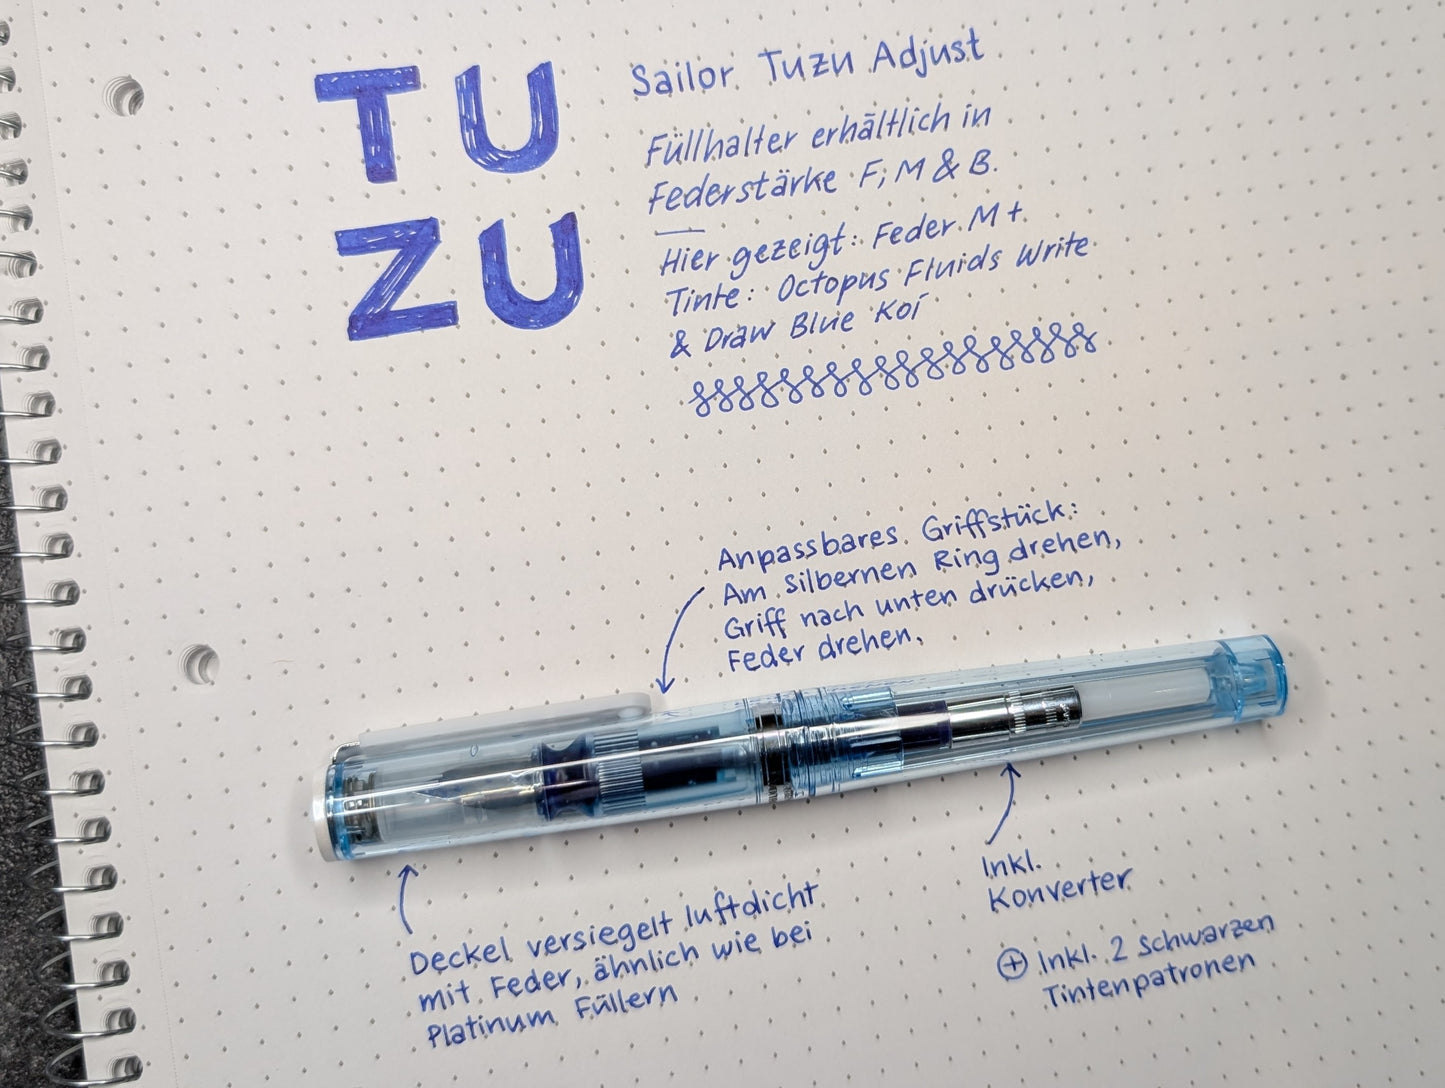 TU
ZU
Sailor Tuzu Adjust
Füllhalter erhältlich in
Federstärke F, M & B.
Hier gezeigt: Feder M +
Tinte: Octopus Fluids Write
& Draw Blue Koi
Anpassbares Griffstück:
Am silbernen Ring drehen,
Griff nach unten drücken,
Feder drehen.
Deckel versiegelt luftdicht
mit Feder, ähnlich wie bei
Platinum Füllern
Inkl.
Konverter
⊕ Inkl. 2 schwarzen
Tintenpatronen